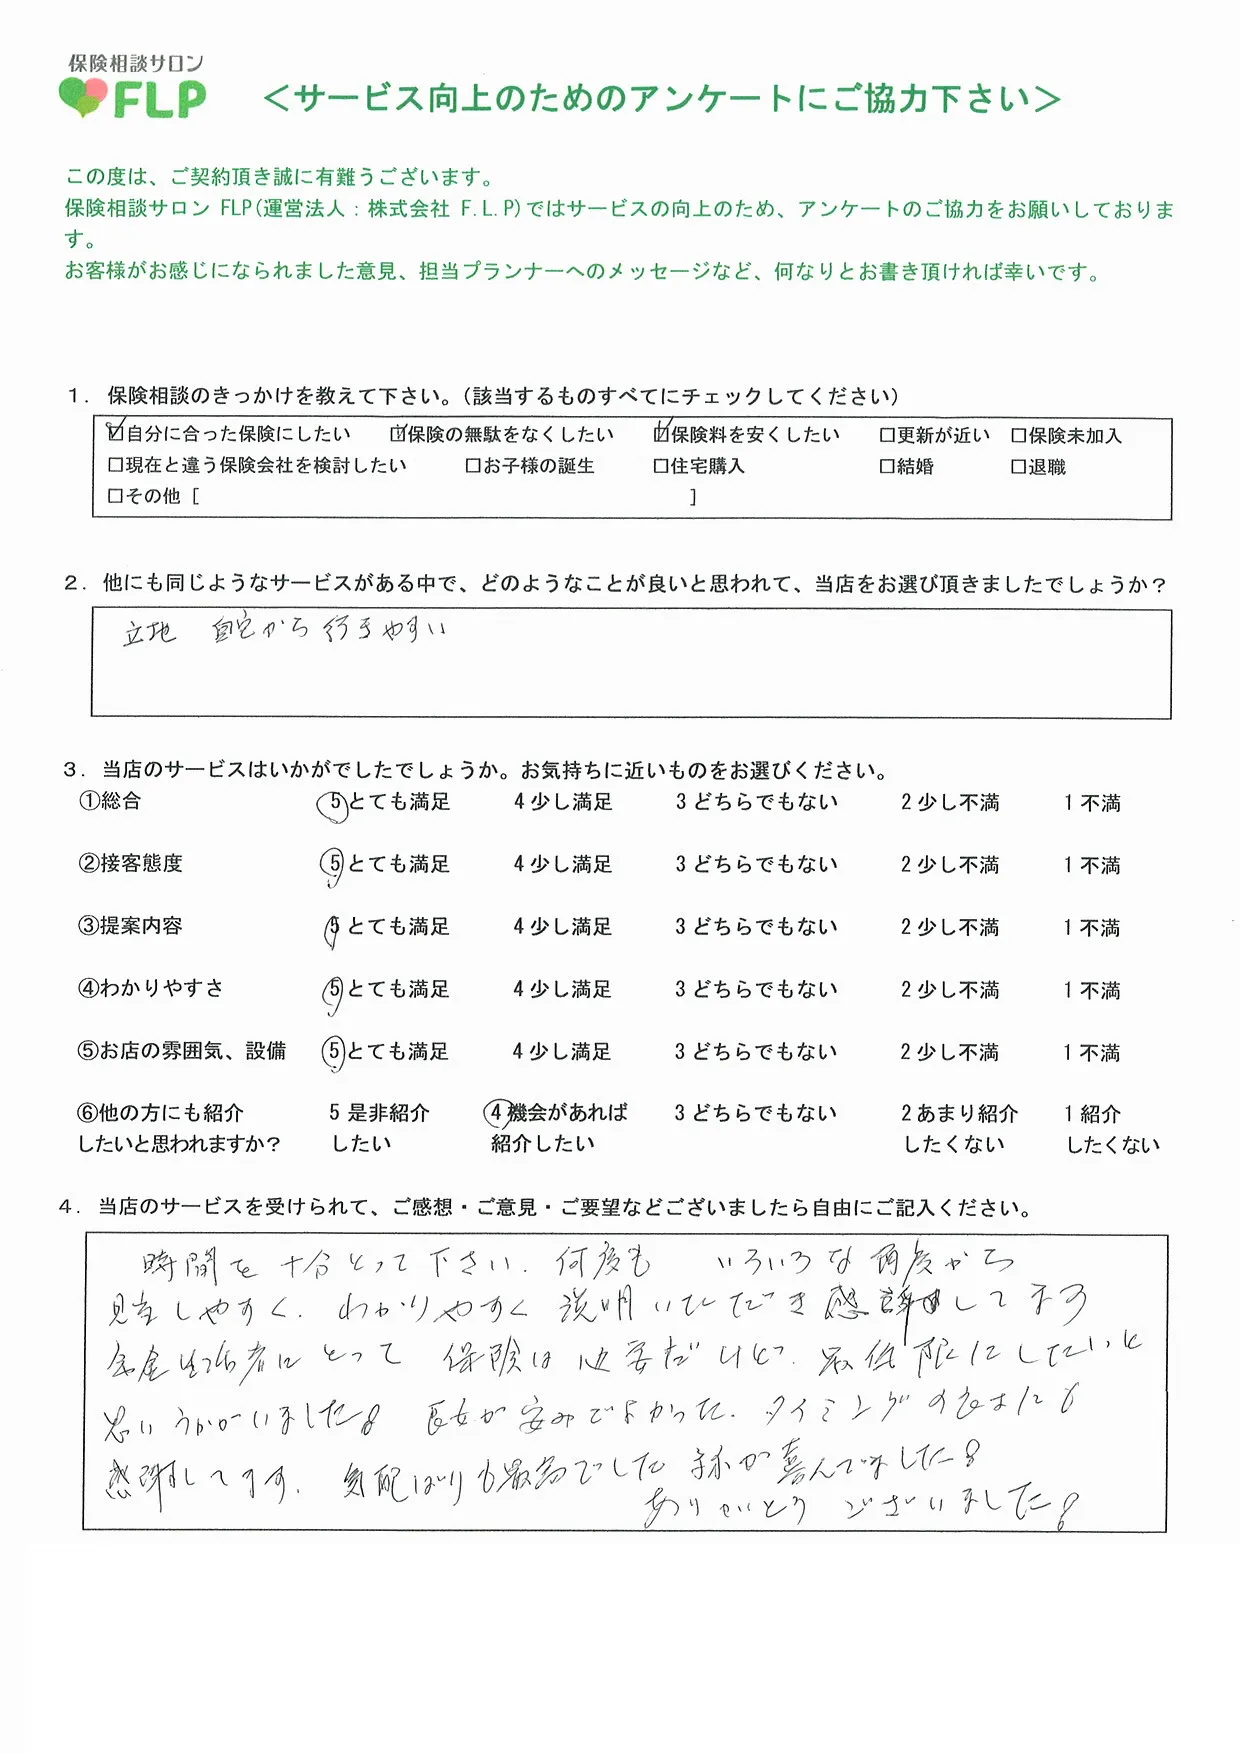 保険相談サロン
FLP
＜サービス向上のためのアンケートにご協力下さい＞
この度は、ご契約頂き誠に有難うございます。
保険相談サロン FLP(運営法人：株式会社 F.L.P)ではサービスの向上のため、アンケートのご協力をお願いしておりま
す。
お客様がお感じになられました意見、担当プランナーへのメッセージなど、何なりとお書き頂ければ幸いです。
１．保険相談のきっかけを教えて下さい。（該当するものすべてにチェックしてください）
☑自分に合った保険にしたい ☑保険の無駄をなくしたい ☑保険料を安くしたい □更新が近い □保険未加入
□現在と違う保険会社を検討したい □お子様の誕生 □住宅購入 □結婚 □退職
□その他 [ ]
２．他にも同じようなサービスがある中で、どのようなことが良いと思われて、当店をお選び頂きましたでしょうか？
立地 自宅から行きやすい
３．当店のサービスはいかがでしたでしょうか。お気持ちに近いものをお選びください。
①総合 5 とても満足 4 少し満足 3 どちらでもない 2 少し不満 1 不満
②接客態度 5 とても満足 4 少し満足 3 どちらでもない 2 少し不満 1 不満
③提案内容 5 とても満足 4 少し満足 3 どちらでもない 2 少し不満 1 不満
④わかりやすさ 5 とても満足 4 少し満足 3 どちらでもない 2 少し不満 1 不満
⑤お店の雰囲気、設備 5 とても満足 4 少し満足 3 どちらでもない 2 少し不満 1 不満
⑥他の方にも紹介 5 是非紹介 4 機会があれば 3 どちらでもない 2 あまり紹介 1 紹介
したいと思われますか？ したい 紹介したい したくない したくない
４．当店のサービスを受けられて、ご感想・ご意見・ご要望などございましたら自由にご記入ください。
時間を十分とって下さい、何度も いろいろな角度から
見直しやすく、わかりやすく説明いただき感謝してます
年金生活者にとって保険は必要だけど、最低限にしたいと
思いうかがいました！ 長女が安みでよかった、タイミングの良さにも
感謝してます、気配ばりも最高でした 孫が喜んでました！
ありがとうございました！